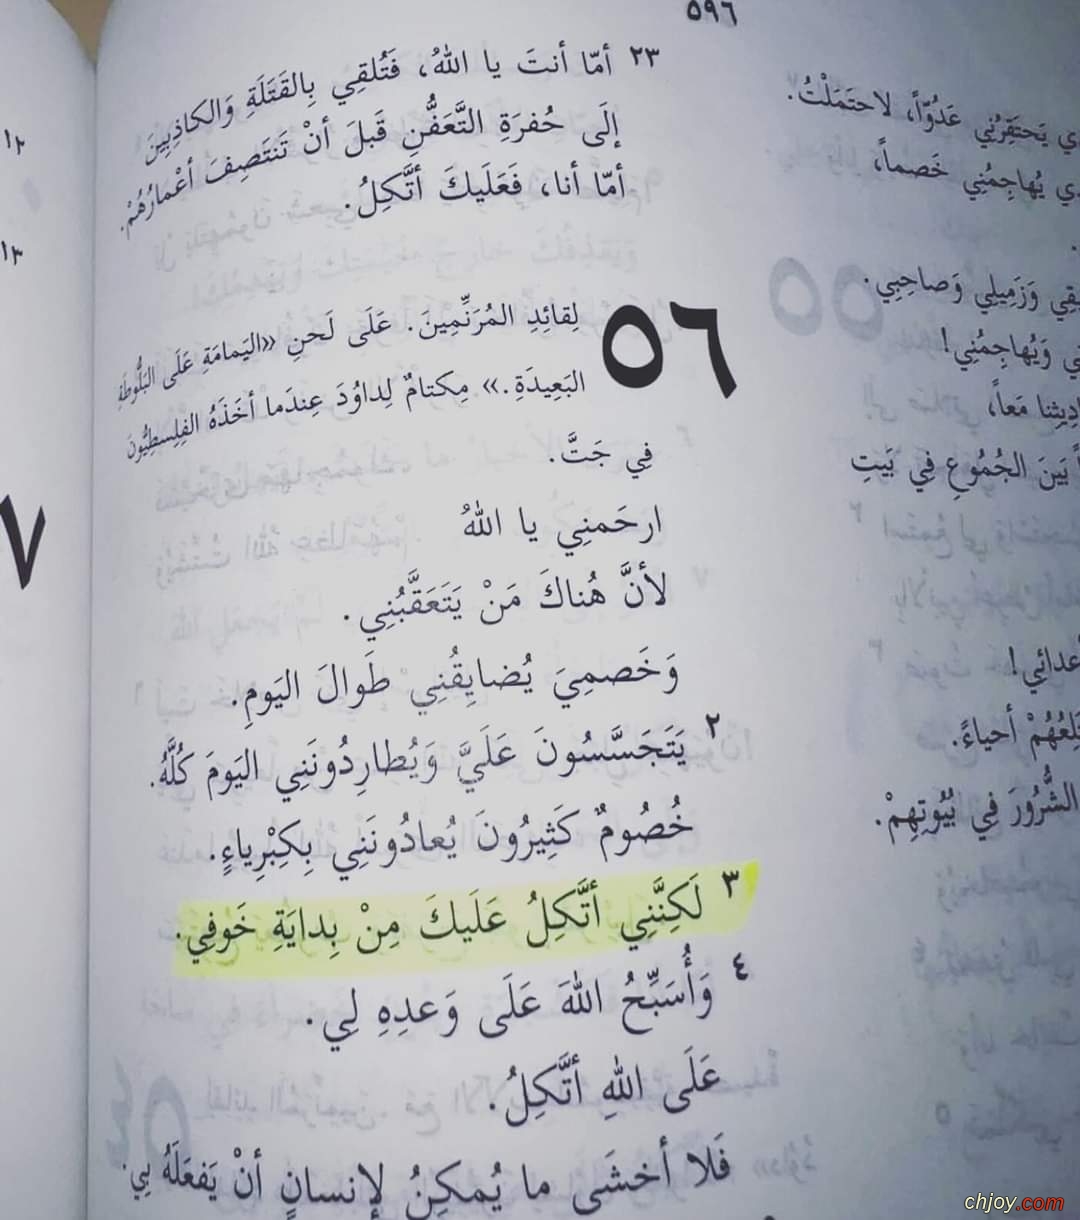 ٥٩٦
ي يَحتَقِرُنِي عَدُوّاً، لاحتَمَلْتُ.
ي يُهاجِمُنِي خَصماً،
وَزَمِيلِي وَصاحِبِي.
وَيُهاجِمُنِي!
مَعاً،
بَينَ الجُمُوعِ فِي بَيتِ
أحياءً.
الشُّرُورَ فِي بُيُوتِهِمْ.
٢٣ أمّا أنتَ يا اللهُ، فَتُلقِي بِالقَتَلَةِ وَالكاذِبِينَ
إلَى حُفرَةِ التَّعَفُّنِ قَبلَ أنْ تَنتَصِفَ أعْمارُهُمْ.
أمّا أنا، فَعَلَيكَ أتَّكِلُ.
٥٦ لِقائِدِ المُرَنِّمِينَ. عَلَى لَحنِ «اليَمامَةِ عَلَى البَلُّوطَةِ
البَعِيدَةِ.» مِكتامٌ لِداوُدَ عِندَما أخَذَهُ الفِلِسطِيُّونَ
فِي جَتَّ.
ارحَمنِي يا اللهُ
لأنَّ هُناكَ مَنْ يَتَعَقَّبُنِي.
وَخَصمِيَ يُضايِقُنِي طَوالَ اليَومِ.
٢ يَتَجَسَّسُونَ عَلَيَّ وَيُطارِدُونَنِي اليَومَ كُلَّهُ.
خُصُومٌ كَثِيرُونَ يُعادُونَنِي بِكِبْرِياءٍ.
٣ لَكِنَّنِي أتَّكِلُ عَلَيكَ مِنْ بِدايَةِ خَوفِي.
٤ وَأُسَبِّحُ اللهَ عَلَى وَعدِهِ لِي.
عَلَى اللهِ أتَّكِلُ.
فَلا أخشَى ما يُمكِنُ لإنسانٍ أنْ يَفعَلَهُ بِي.
١٢
١٣
٧
chjoy.com